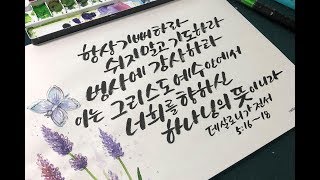 항상 기뻐하라
쉬지 말고 기도하라
범사에 감사하라
이는 그리스도 예수 안에서
너희를 향하신
하나님의 뜻이니라
데살로니가전서
5:16-18